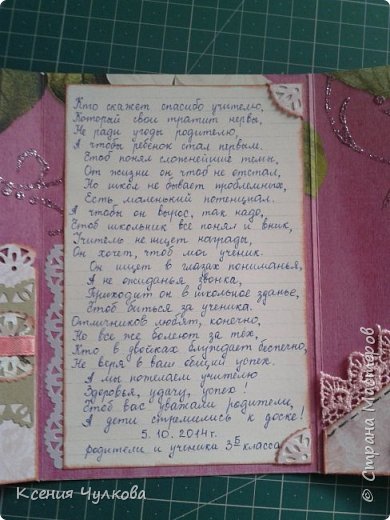 Кто скажет спасибо учителю,
Который свои тратит нервы,
Не ради угоды родителю,
А чтобы ребёнок стал первым.
Чтоб понял сложнейшие темы,
От жизни он чтоб не отстал,
Но школ не бывает проблемных,
Есть маленький потенциал.
А чтобы он вырос, так надо,
Чтоб школьник все понял и вник,
Учитель не ищет награды,
Он хочет, чтоб мог ученик.
Он ищет в глазах пониманья,
А не ожиданья звонка,
Приходит он в школьное зданье,
Чтоб биться за ученика.
Отличников любят, конечно,
Но все же болеют за тех,
Кто в двойках блуждает беспечно,
Не веря в ваш общий успех.
А мы пожелаем учителю
Здоровья, удачу, успех!
Чтоб вас уважали родители,
А дети стремились к доске!
5.10.2014г.
родители и ученики 3Б класса
Ксения Чулкова
© Страна Мастеров